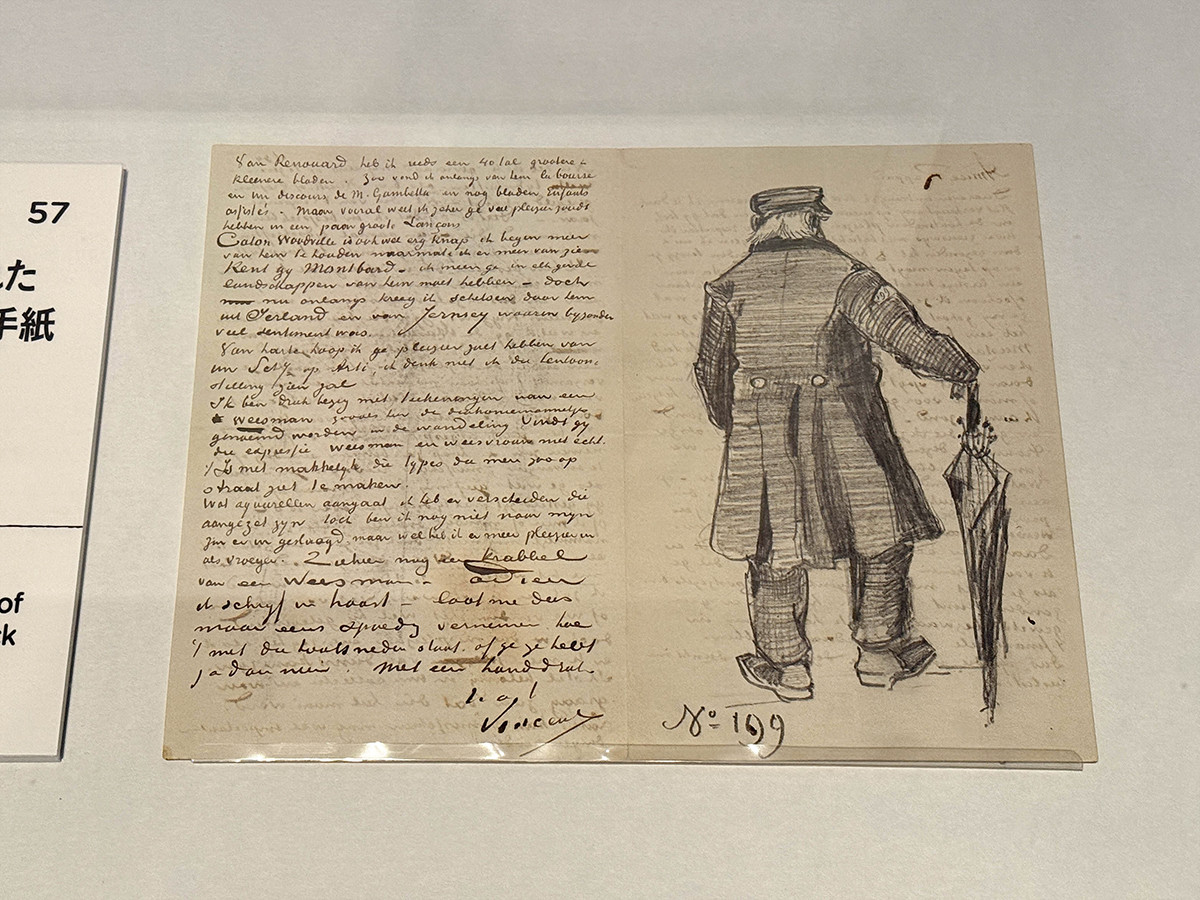 57
れた
手紙
of
ck
Van Renouard heb ik reeds een 40 tal grootere &
kleinere bladen. Zoo vond ik onlangs van hem la bourse
en un discours de M. Gambetta en nog bladen Enfants
assistés. Maar vooral weet ik zeker ge veel pleizier zoudt
hebben in een paar groote Lançons
Caton Woodville is ook wel erg knap ik begin meer
van hem te houden naarmate ik er meer van zie
Kent gy Montbard - ik meen ge in elk geval
landschappen van hem moet hebben - doch
nu onlangs kreeg ik schetsen door hem
uit Ierland en van Jersey waarin byzonder
veel sentiment was.
Van harte hoop ik ge pleizier zult hebben van
uw Schij op Arti. ik denk niet ik die tentoon-
stelling zien zal
Ik ben druk bezig met teekeningen van een
weesman zooals hier de diakoniemannetjes
genoemd worden in de wandeling. Vindt gy
die expressie weesman en weesvrouw niet echt.
't Is niet makkelyk die types die men zoo op
straat ziet te maken.
Wat aquarellen aangaat ik heb er verscheiden die
aangezet zyn toch ben ik nog niet naar myn
zin er in geslaagd maar wel heb ik er meer pleizier in
als vroeger. Ziehier nog een krabbel
van een Weesman - adieu
ik schryf in haast - laat me dus
maar eens spoedig vernemen hoe
't met die houtsneden staat. of ge ze hebt
ja dan neen. Met een handdruk
t. à t.
Vincent
No 199